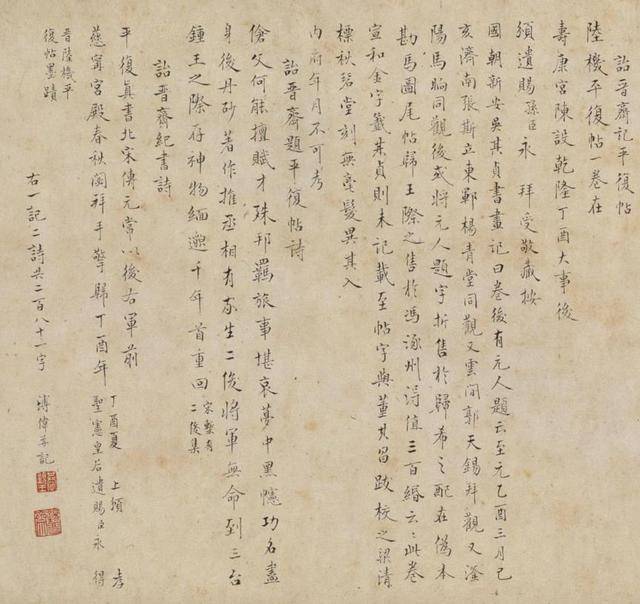 詒晉齋記平復帖
陸機平復帖一卷在
壽康宮陳設乾隆丁酉大事後
頒遺賜孫臣永 拜受敬藏按
國朝新安吳其貞書畫記曰卷後有元人題云至元乙酉三月己
亥濟南張斯立東鄆楊青堂同觀又雲間郭天錫拜觀又滏
陽馬昫同觀後或將元人題字折售於歸希之配在偽本
勘馬圖尾帖歸王際之售於馮涿州得值三百緡云云此卷
宣和金字籤其貞則未記載至帖字與董其昌跋校之梁清
標秋碧堂刻無毫髮異其入
內府年月不可考
詒晉齋題平復帖詩
傖父何能擅賦才殊邦羈旅事堪哀夢中黑幰功名盡
身後丹砂著作推丞相有家生二俊將軍無命到三台
鍾王之際存神物緬邈千年首重回 宋槧有二俊集
詒晉齋紀書詩
平復真書北宋傳元常以後右軍前
慈甯宮殿春秋閟拜手擎歸丁酉年 丁酉夏 上頒 孝聖憲皇后遺賜臣永 得
晉陸機平復帖墨蹟
右一記二詩共二百八十一字 溥偉謹記